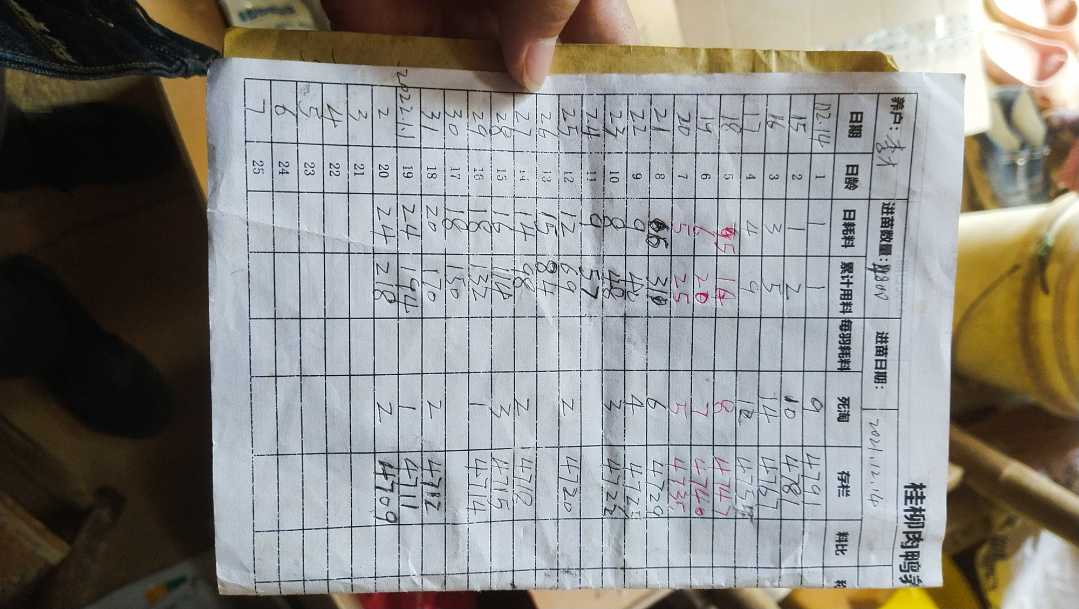 桂柳肉鸭养
养户: 李才 进苗数量: 4800 进苗日期: 2021.12.14
日期 日龄 日耗料 累计用料 每羽耗料 死淘 存栏 料比
12.14 1 1 1 9 4791
15 2 1 2 10 4781
16 3 3 5 14 4767
17 4 4 9 12 4755
18 5 5 14 8 4747
19 6 6 20 7 4740
20 7 5 25 5 4735
21 8 6 31 6 4729
22 9 9 40 4 4725
23 10 8 48 3 4722
24 11 9 57
25 12 12 69 2 4720
26 13 15 84
27 14 14 98 2 4718
28 15 16 114 3 4715
29 16 18 132 1 4714
30 17 18 150
31 18 20 170 2 4712
2022.1.1 19 24 194 1 4711
2 20 24 218 2 4709
3 21
4 22
5 23
6 24
7 25